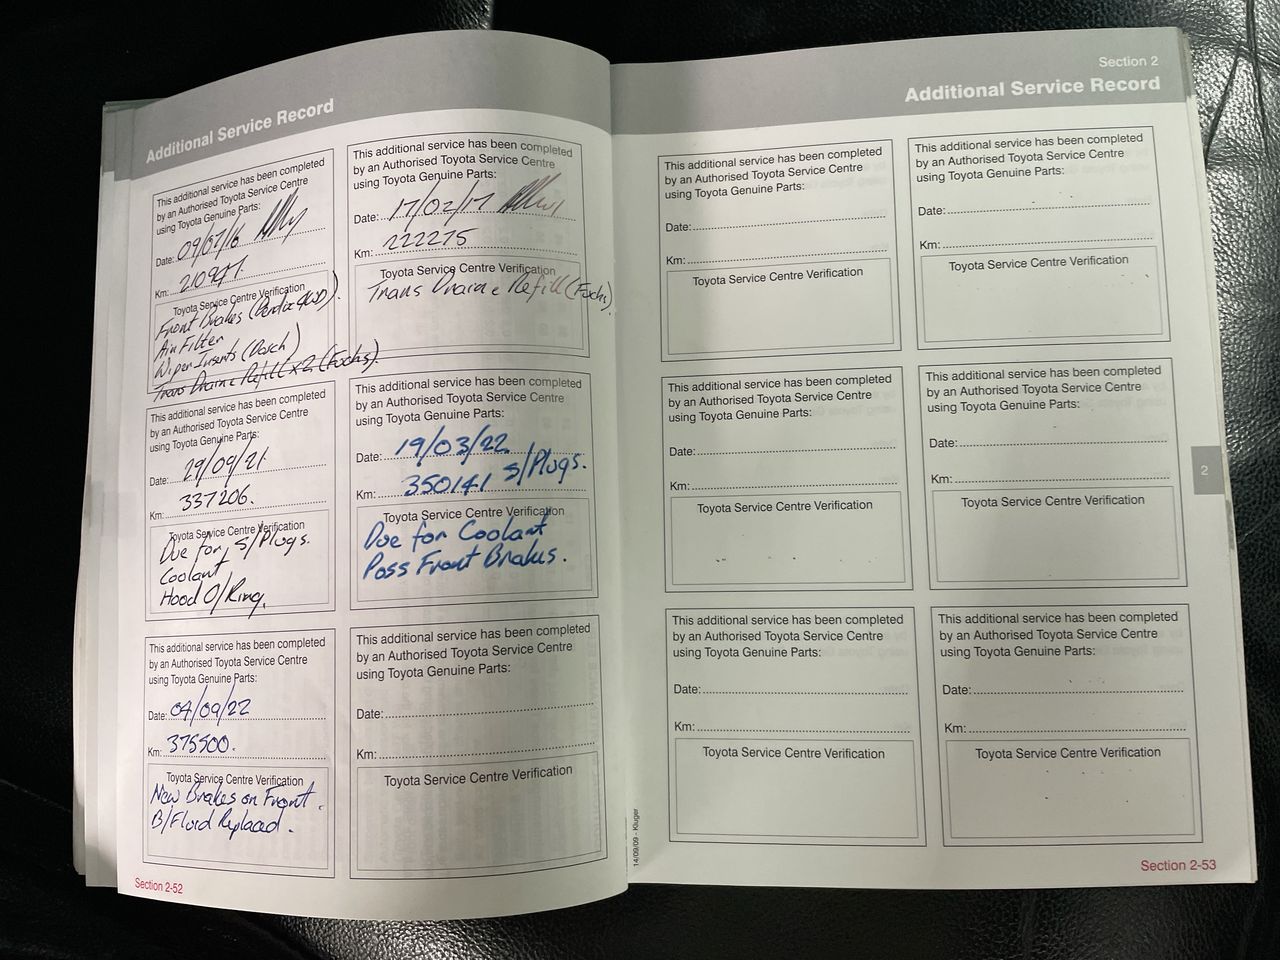 Additional Service Record
This additional service has been completed
by an Authorised Toyota Service Centre
using Toyota Genuine Parts:
Date: 09/07/16
Km: 210971
Toyota Service Centre Verification
Front Brakes (Bendix 4WD).
Air Filter
Wiper Inserts (Bosch)
Trans Drain & Refill x2 (Fuchs).
This additional service has been completed
by an Authorised Toyota Service Centre
using Toyota Genuine Parts:
Date: 17/02/17
Km: 222275
Toyota Service Centre Verification
Trans Drain & Refill (Fuchs).
This additional service has been completed
by an Authorised Toyota Service Centre
using Toyota Genuine Parts:
Date: 29/09/21
Km: 337206.
Toyota Service Centre Verification
Due for, S/Plugs.
Coolant
Hood O/Ring.
This additional service has been completed
by an Authorised Toyota Service Centre
using Toyota Genuine Parts:
Date: 19/03/22
Km: 350141 S/Plugs.
Toyota Service Centre Verification
Due for Coolant
Poss Front Brakes.
This additional service has been completed
by an Authorised Toyota Service Centre
using Toyota Genuine Parts:
Date: 04/09/22
Km: 375500.
Toyota Service Centre Verification
New Brakes on Front.
B/Fluid Replaced.
This additional service has been completed
by an Authorised Toyota Service Centre
using Toyota Genuine Parts:
Date:
Km:
Toyota Service Centre Verification
Section 2-52
14/09/09 - Kluger
Section 2
Additional Service Record
This additional service has been completed
by an Authorised Toyota Service Centre
using Toyota Genuine Parts:
Date:
Km:
Toyota Service Centre Verification
This additional service has been completed
by an Authorised Toyota Service Centre
using Toyota Genuine Parts:
Date:
Km:
Toyota Service Centre Verification
This additional service has been completed
by an Authorised Toyota Service Centre
using Toyota Genuine Parts:
Date:
Km:
Toyota Service Centre Verification
This additional service has been completed
by an Authorised Toyota Service Centre
using Toyota Genuine Parts:
Date:
Km:
Toyota Service Centre Verification
2
This additional service has been completed
by an Authorised Toyota Service Centre
using Toyota Genuine Parts:
Date:
Km:
Toyota Service Centre Verification
This additional service has been completed
by an Authorised Toyota Service Centre
using Toyota Genuine Parts:
Date:
Km:
Toyota Service Centre Verification
Section 2-53